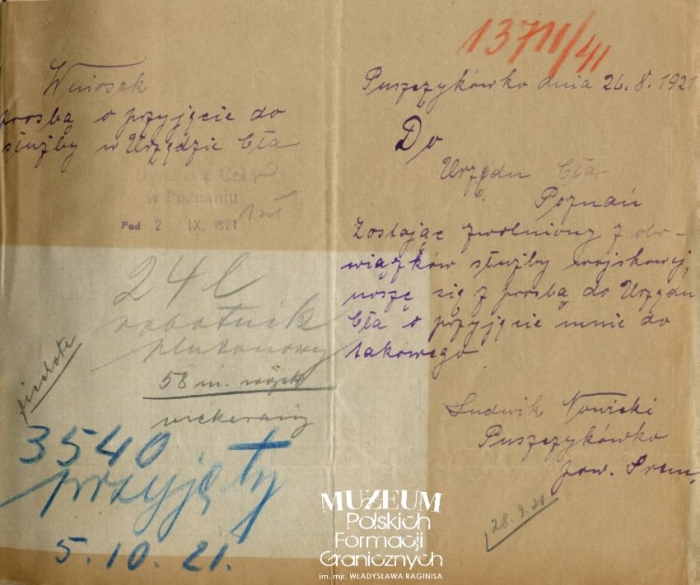 Wniosek
prosbą o przyjęcie do
służby w Urzędzie Cła
w Poznaniu
Pod 2 IX. 1921
24 l
robotnik
plutonowy
58 m.
piechota
3540
przyjęty
5.10.21.
13711/41
Puszczykówko dnia 26.8.1921
Do
Urzędu Cła
Poznań
Zostając zwolniony z obo-
wiązków służby wojskowej,
noszę się z prosbą do Urzędu
Cła o przyjęcie mnie do
takowego
Ludwik Nowicki
Puszczykówko
pow. Śrem,
28.9.21
MUZEUM
Polskich
Formacji
Granicznych
im. mjr. WŁADYSŁAWA RAGINISA